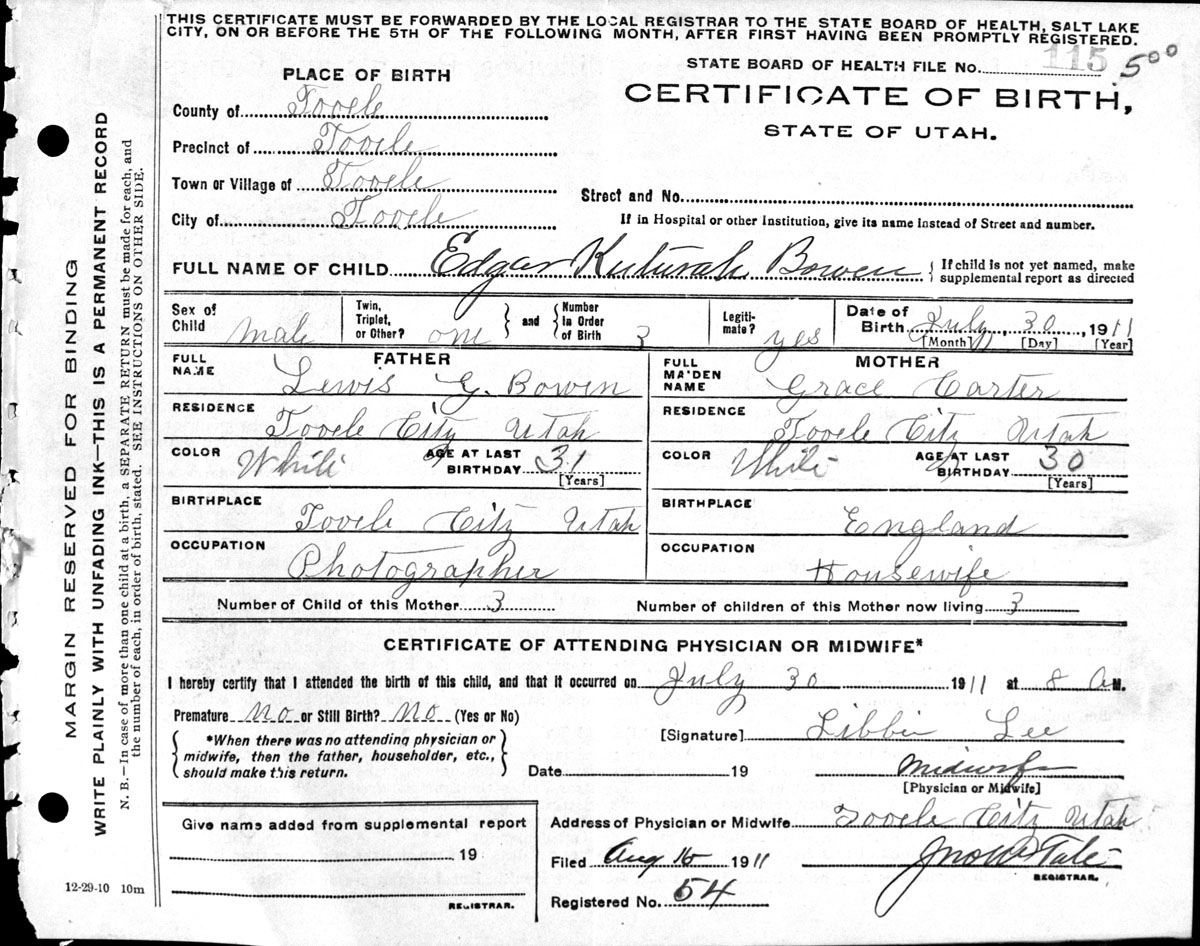 THIS CERTIFICATE MUST BE FORWARDED BY THE LOCAL REGISTRAR TO THE STATE BOARD OF HEALTH, SALT LAKE
CITY, ON OR BEFORE THE 5TH OF THE FOLLOWING MONTH, AFTER FIRST HAVING BEEN PROMPTLY REGISTERED.
STATE BOARD OF HEALTH FILE No. 115 500
PLACE OF BIRTH
CERTIFICATE OF BIRTH,
STATE OF UTAH.
County of Tooele
Precinct of Tooele
Town or Village of Tooele
Street and No.
City of Tooele
If in Hospital or other Institution, give its name instead of Street and number.
FULL NAME OF CHILD Edgar Bowen { If child is not yet named, make
supplemental report as directed
Sex of Child male Twin, Triplet, or Other? one } and { Number In Order of Birth 3 Legiti-mate? yes Date of Birth July, 30, 1911
[Month] [Day] [Year]
FATHER MOTHER
FULL NAME Lewis G. Bowen FULL MAIDEN NAME Grace Carter
RESIDENCE Tooele City Utah RESIDENCE Tooele City Utah
COLOR White AGE AT LAST BIRTHDAY 31 [Years] COLOR White AGE AT LAST BIRTHDAY 30 [Years]
BIRTHPLACE Tooele City Utah BIRTHPLACE England
OCCUPATION Photographer OCCUPATION Housewife
Number of Child of this Mother 3 Number of children of this Mother now living 3
CERTIFICATE OF ATTENDING PHYSICIAN OR MIDWIFE*
I hereby certify that I attended the birth of this child, and that it occurred on July 30 1911 at 8 A M.
Premature No or Still Birth? No (Yes or No)
[Signature] Libbie Lee
{ *When there was no attending physician or
midwife, then the father, householder, etc.,
should make this return. }
Date 19 Midwife
[Physician or Midwife]
Give name added from supplemental report
19
REGISTRAR.
12-29-10 10m
Address of Physician or Midwife Tooele City Utah
Filed Aug 16 1911
REGISTRAR.
Registered No. 54
MARGIN RESERVED FOR BINDING
WRITE PLAINLY WITH UNFADING INK—THIS IS A PERMANENT RECORD
N. B.—In case of more than one child at a birth, a SEPARATE RETURN must be made for each, and
the number of each, in order of birth, stated. SEE INSTRUCTIONS ON OTHER SIDE.